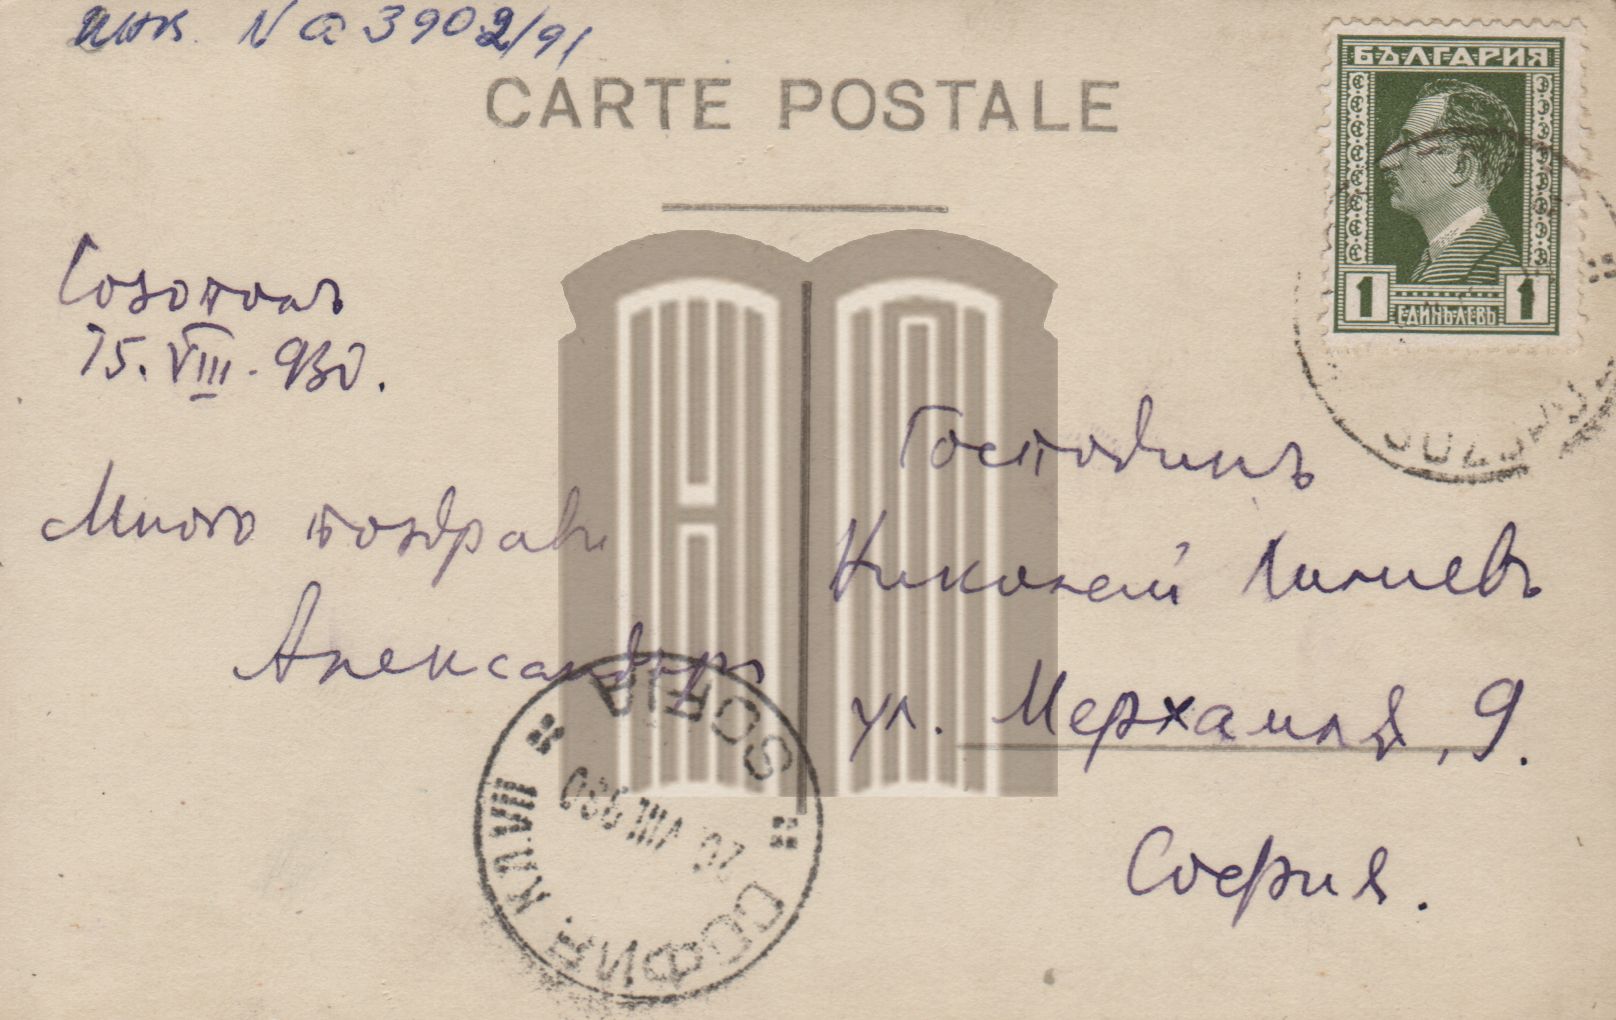 инв. № а 3902/91
CARTE POSTALE
БЪЛГАРИЯ
1 ЕДИНЪ ЛЕВЪ 1
Созополъ
15.VIII.930.
Много поздрави
Александъръ
Господинъ
Николай Лилиевъ
ул. Мерхамля, 9.
София.
SOFIA
20. VIII. 930
СОФИЯ. КЛ. VII